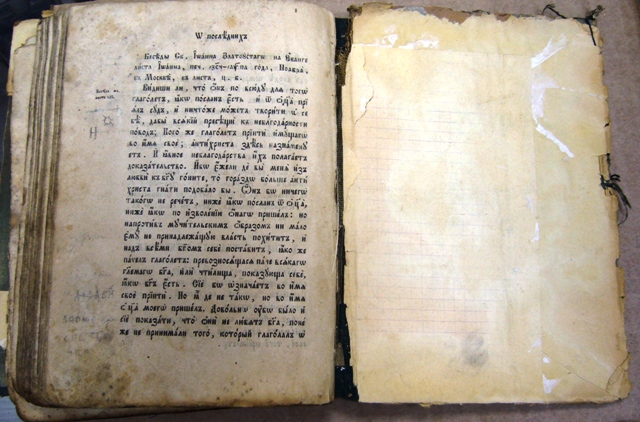 Ѡ послѣднихъ
Бесѣды Св. Іѡанна Златоꙋстагѡ на Єѵанге
листа Іѡанна, печ.
года, Ноѧбрѧ,
въ Москвѣ, въ листъ, ц. в.
Видиши ли, что Ѻнъ по всюдꙋ для тогѡ
глаголетъ, ꙗкѡ посланъ єсть и ѿ Ѻц҃а прї
ѧлъ сꙋдъ, и ничтоже можетъ творити ѡ се
бѣ, дабы всѧкїй пресѣщи къ неблагодарности
поводъ; Когѡ же глаголетъ прїити имꙋщагѡ
во имѧ свое; антихриста здѣсь назнаменꙋ
етъ. И ꙗвное неблагодарства ихъ полагаетъ
доказательство. Ибѡ єжели де вы менѧ изъ
любви къ бг҃ꙋ гоните, то гораздѡ больше анти
христа гнати подобало бы. Ѻнъ бо ничегѡ
такогѡ не речетъ, ниже ꙗкѡ посланъ ѿ ѻц҃а,
ниже ꙗкѡ по изволенїю ѻнагѡ пришелъ: но
напротивъ мꙋчительскимъ ѻбразомъ ни мало
ємꙋ не принадлежащꙋю власть похититъ, и
надъ всѣми бг҃омъ себе поставитъ, ꙗко же
павелъ глаголетъ: превозносѧщасѧ паче всѧкагѡ
гл҃емагѡ бг҃а, или чтилища, показꙋюща себе,
ꙗкѡ бг҃ъ єсть. Сїе бо ѡзначаетъ во имѧ
свое прїити. Но ѧ де не такѡ, но во имѧ
ѻц҃а моегѡ пришелъ. Довольнѡ ѹбѡ было и
сїе показати, что ѻни не любѧтъ бг҃а, поне
же не принимали того, который глаголалъ ѡ